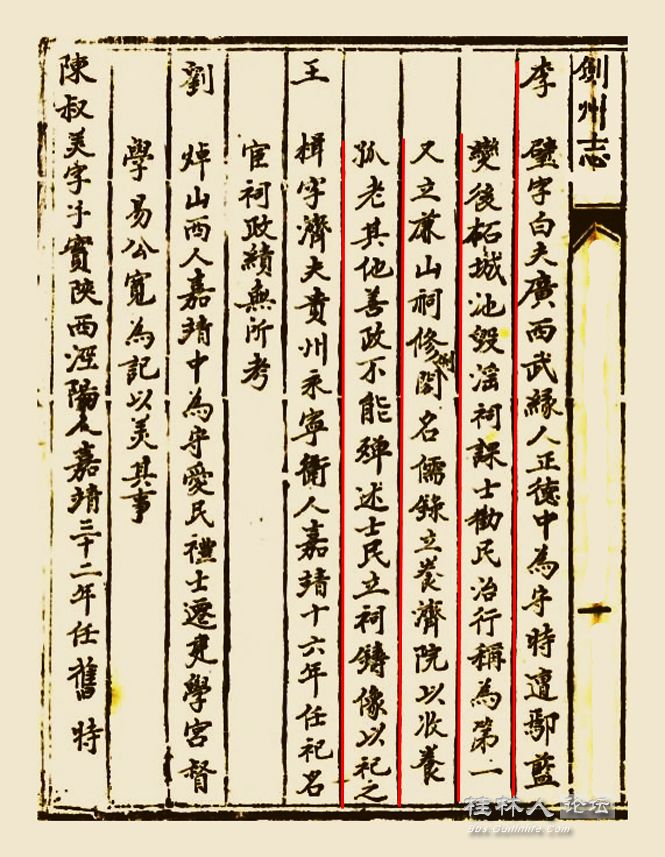 劍州志
李 璧字白夫廣西武緣人正德中為守時遭鄢藍
變後柘城池毀滛祠課士勸民治行稱為第一
又立兼山祠修劍閣名儒錄立養濟院以收養
孤老其他善政不能殚述士民立祠鑄像以祀之
王 楫字濟夫貴州永寧衛人嘉靖十六年任祀名
宦祠政績無所考
劉 焯山西人嘉靖中為守愛民禮士遷建學宮督
學易公寬為記以美其事
陳叔美字 實陝西涇陽人嘉靖三十二年任舊 時
一
桂林人论坛
bbs.Guilinlife.Com